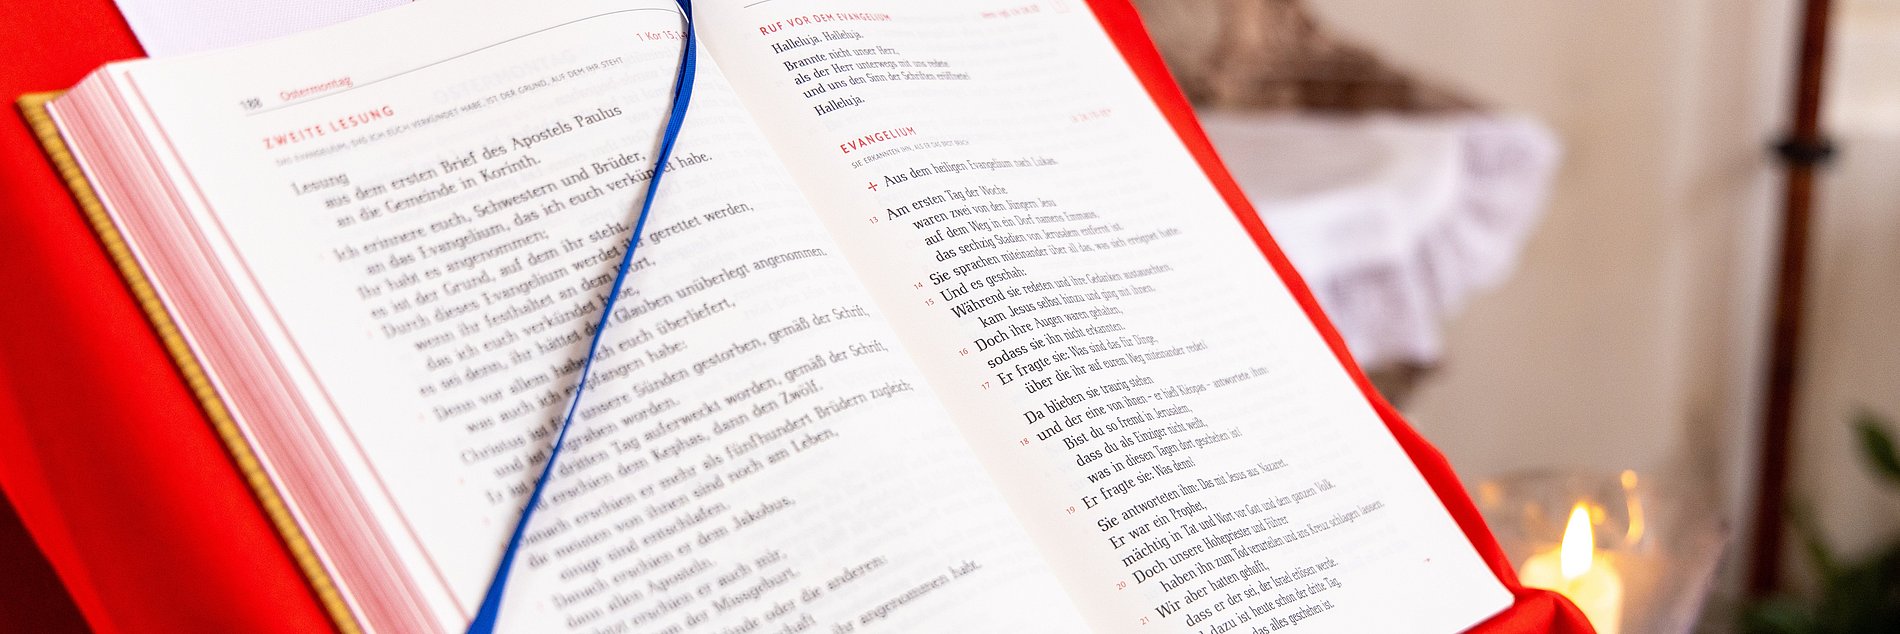 188 Ostermontag
1 Kor 15,1
ZWEITE LESUNG
DAS EVANGELIUM, DAS ICH EUCH VERKÜNDET HABE, IST DER GRUND, AUF DEM IHR STEHT
Lesung
aus dem ersten Brief des Apostels Paulus
an die Gemeinde in Korinth.
Ich erinnere euch, Schwestern und Brüder,
an das Evangelium, das ich euch verkündet habe.
Ihr habt es angenommen;
es ist der Grund, auf dem ihr steht.
Durch dieses Evangelium werdet ihr gerettet werden,
wenn ihr festhaltet an dem Wort,
das ich euch verkündet habe,
es sei denn, ihr hättet den Glauben unüberlegt angenommen.
Denn vor allem habe ich euch überliefert,
was auch ich empfangen habe:
Christus ist für unsere Sünden gestorben, gemäß der Schrift,
und ist begraben worden.
Er ist am dritten Tag auferweckt worden, gemäß der Schrift,
und erschien dem Kephas, dann den Zwölf.
Danach erschien er mehr als fünfhundert Brüdern zugleich;
die meisten von ihnen sind noch am Leben,
einige sind entschlafen.
Danach erschien er dem Jakobus,
dann allen Aposteln.
erschien er auch mir,
der Missgeburt.
oder die anderen:
ihr angenommen habt.
RUF VOR DEM EVANGELIUM
Halleluja. Halleluja.
Brannte nicht unser Herz,
als der Herr unterwegs mit uns redete
und uns den Sinn der Schriften eröffnete!
Halleluja.
EVANGELIUM
SIE ERKANNTEN IHN, ALS ER DAS BROT BRACH
+ Aus dem heiligen Evangelium nach Lukas.
13 Am ersten Tag der Woche
waren zwei von den Jüngern Jesu
auf dem Weg in ein Dorf namens Emmaus,
das sechzig Stadien von Jerusalem entfernt ist.
14 Sie sprachen miteinander über all das, was sich ereignet hatte.
15 Und es geschah:
Während sie redeten und ihre Gedanken austauschten,
kam Jesus selbst hinzu und ging mit ihnen.
16 Doch ihre Augen waren gehalten,
sodass sie ihn nicht erkannten.
17 Er fragte sie: Was sind das für Dinge,
über die ihr auf eurem Weg miteinander redet?
Da blieben sie traurig stehen
18 und der eine von ihnen – er hieß Kleopas – antwortete ihm:
Bist du so fremd in Jerusalem,
dass du als Einziger nicht weißt,
was in diesen Tagen dort geschehen ist?
19 Er fragte sie: Was denn?
Sie antworteten ihm: Das mit Jesus aus Nazaret.
Er war ein Prophet,
mächtig in Tat und Wort vor Gott und dem ganzen Volk.
20 Doch unsere Hohepriester und Führer
haben ihn zum Tod verurteilen und ans Kreuz schlagen lassen.
21 Wir aber hatten gehofft,
dass er der sei, der Israel erlösen werde.
dazu ist heute schon der dritte Tag,
das alles geschehen ist.